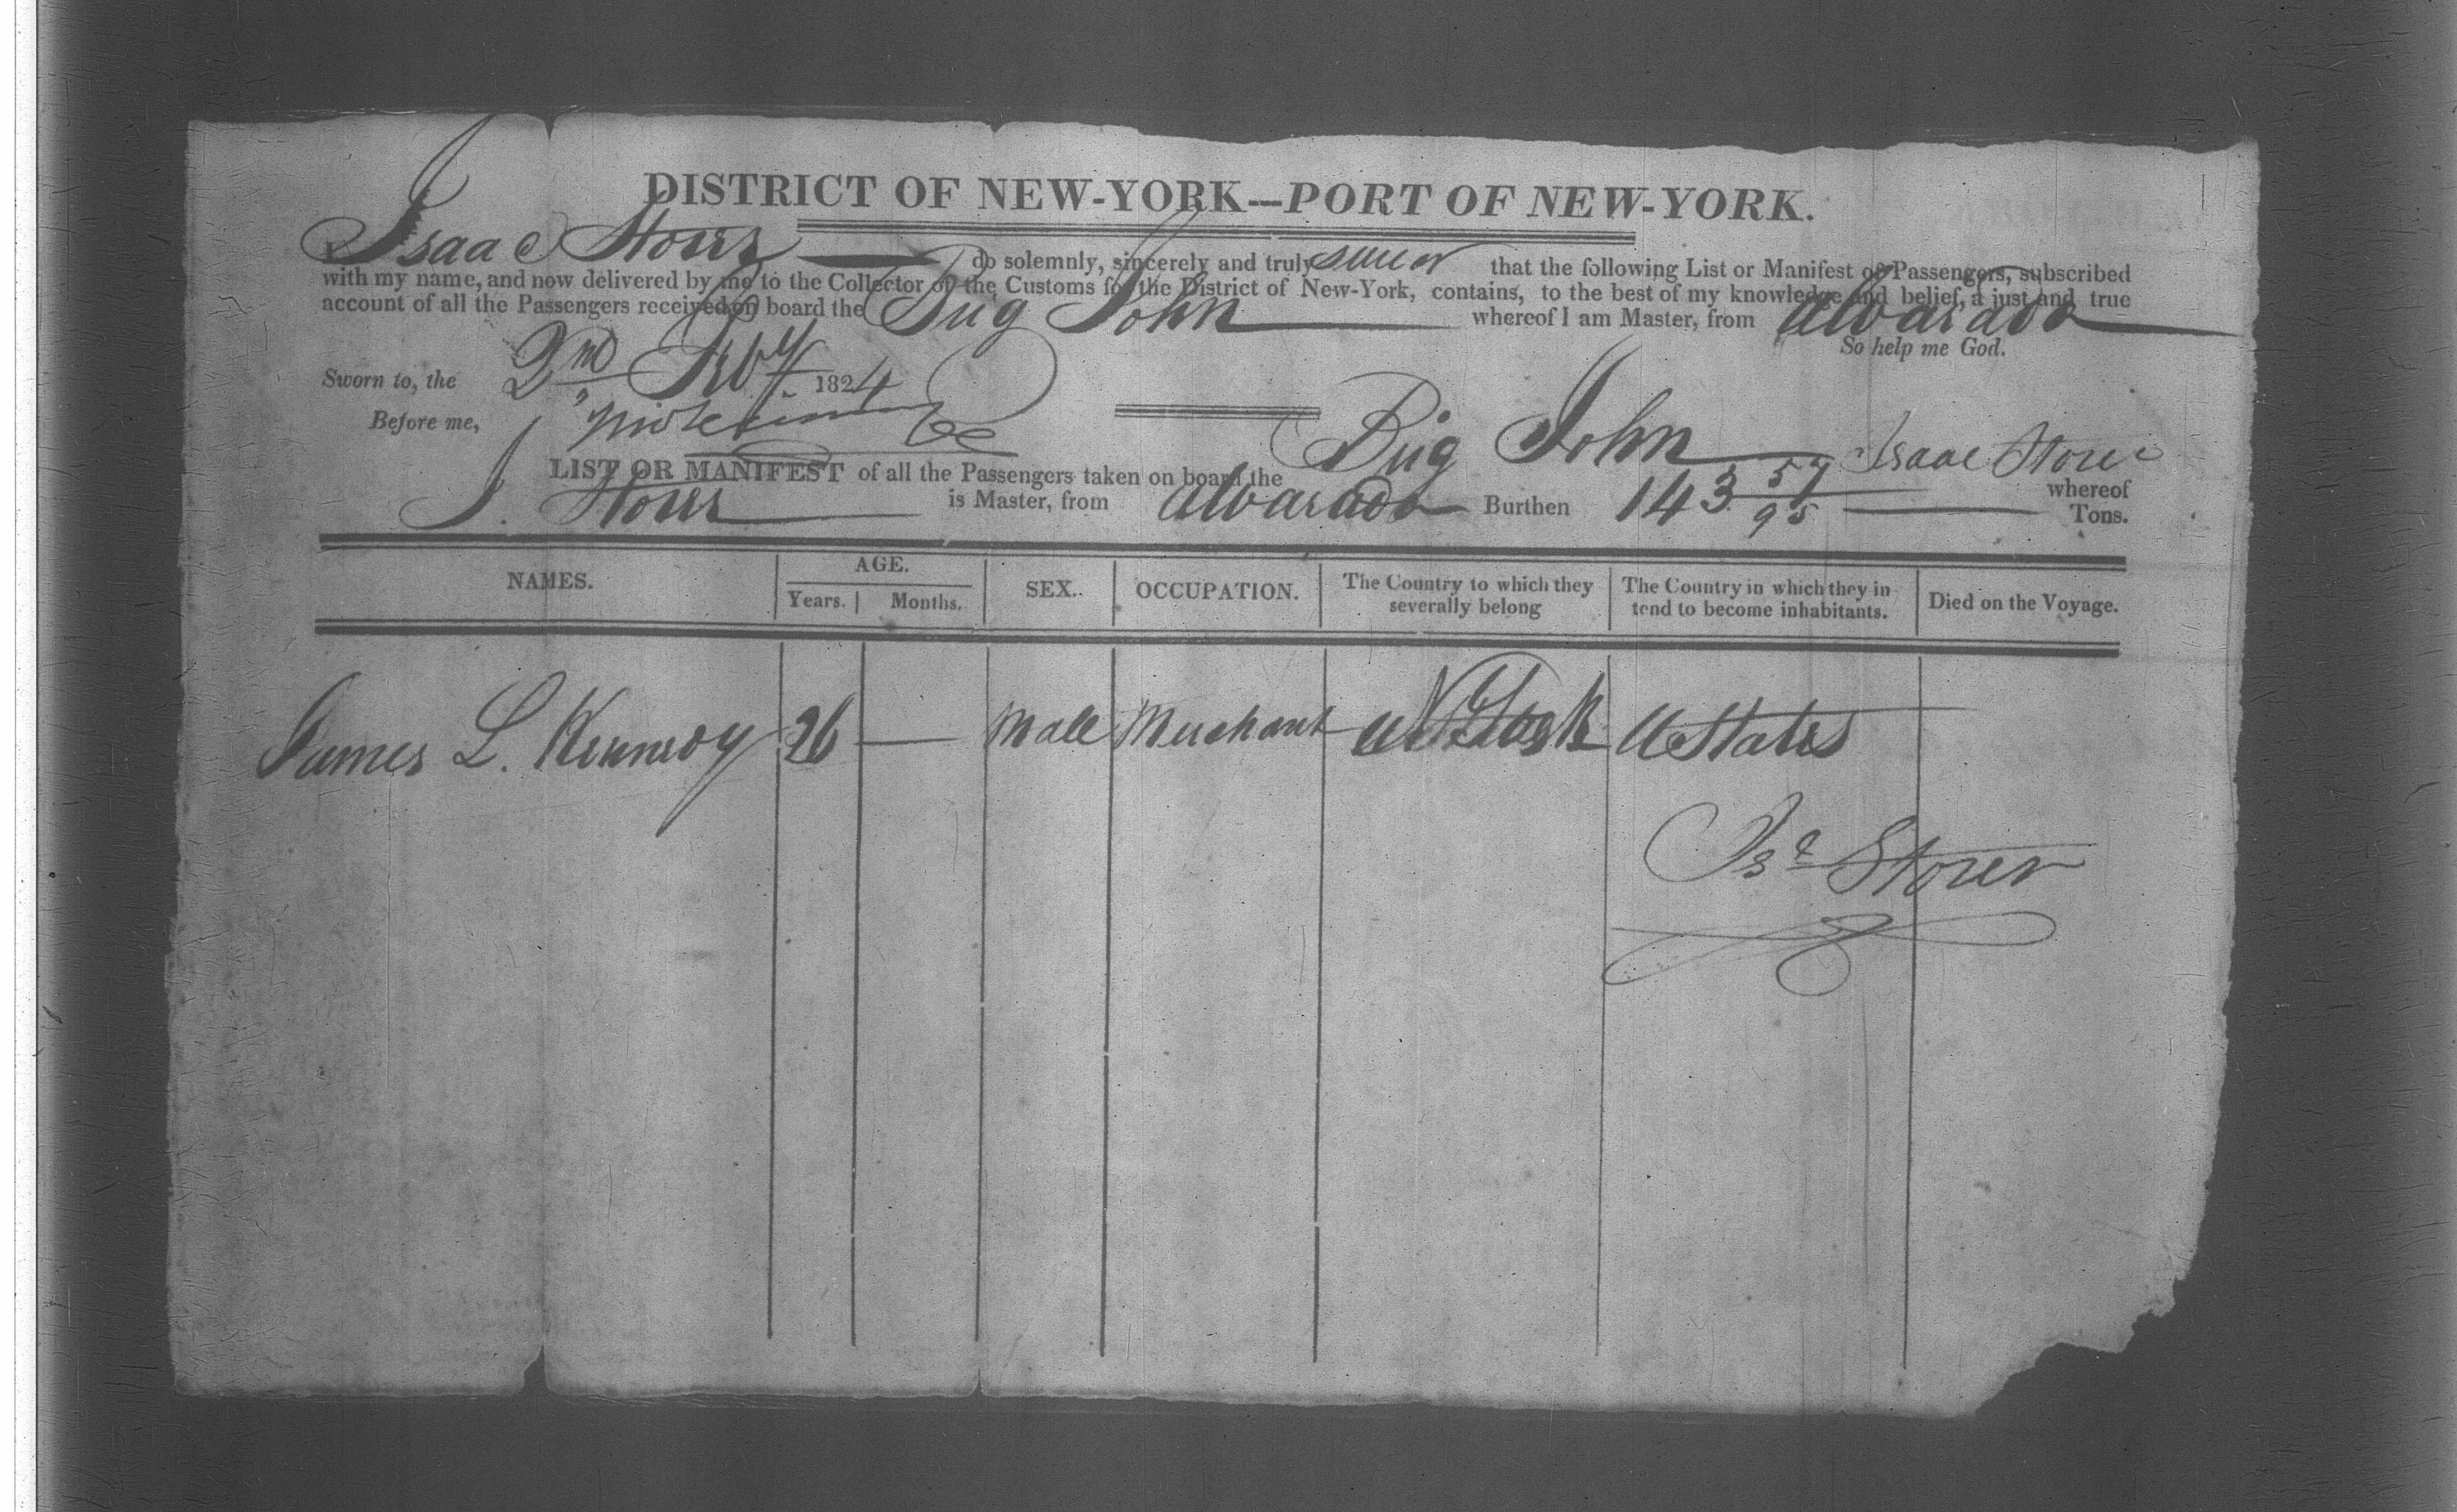 DISTRICT OF NEW-YORK—PORT OF NEW-YORK.
I Isaac Storer do solemnly, sincerely and truly swear that the following List or Manifest of Passengers, subscribed
with my name, and now delivered by me to the Collector of the Customs for the District of New-York, contains, to the best of my knowledge and belief, a just and true
account of all the Passengers received on board the Brig John whereof I am Master, from Alvarado
So help me God.
Sworn to, the 2nd Feby 1824
Before me,
Isaac Storer
LIST OR MANIFEST of all the Passengers taken on board the Brig John whereof
I. Storer is Master, from Alvarado Burthen 143 57/95 Tons.
NAMES. AGE. SEX. OCCUPATION. The Country to which they severally belong The Country in which they intend to become inhabitants. Died on the Voyage.
Years. Months.
James L. Kennedy 26 — Male Merchant N York U States
Isc Storer